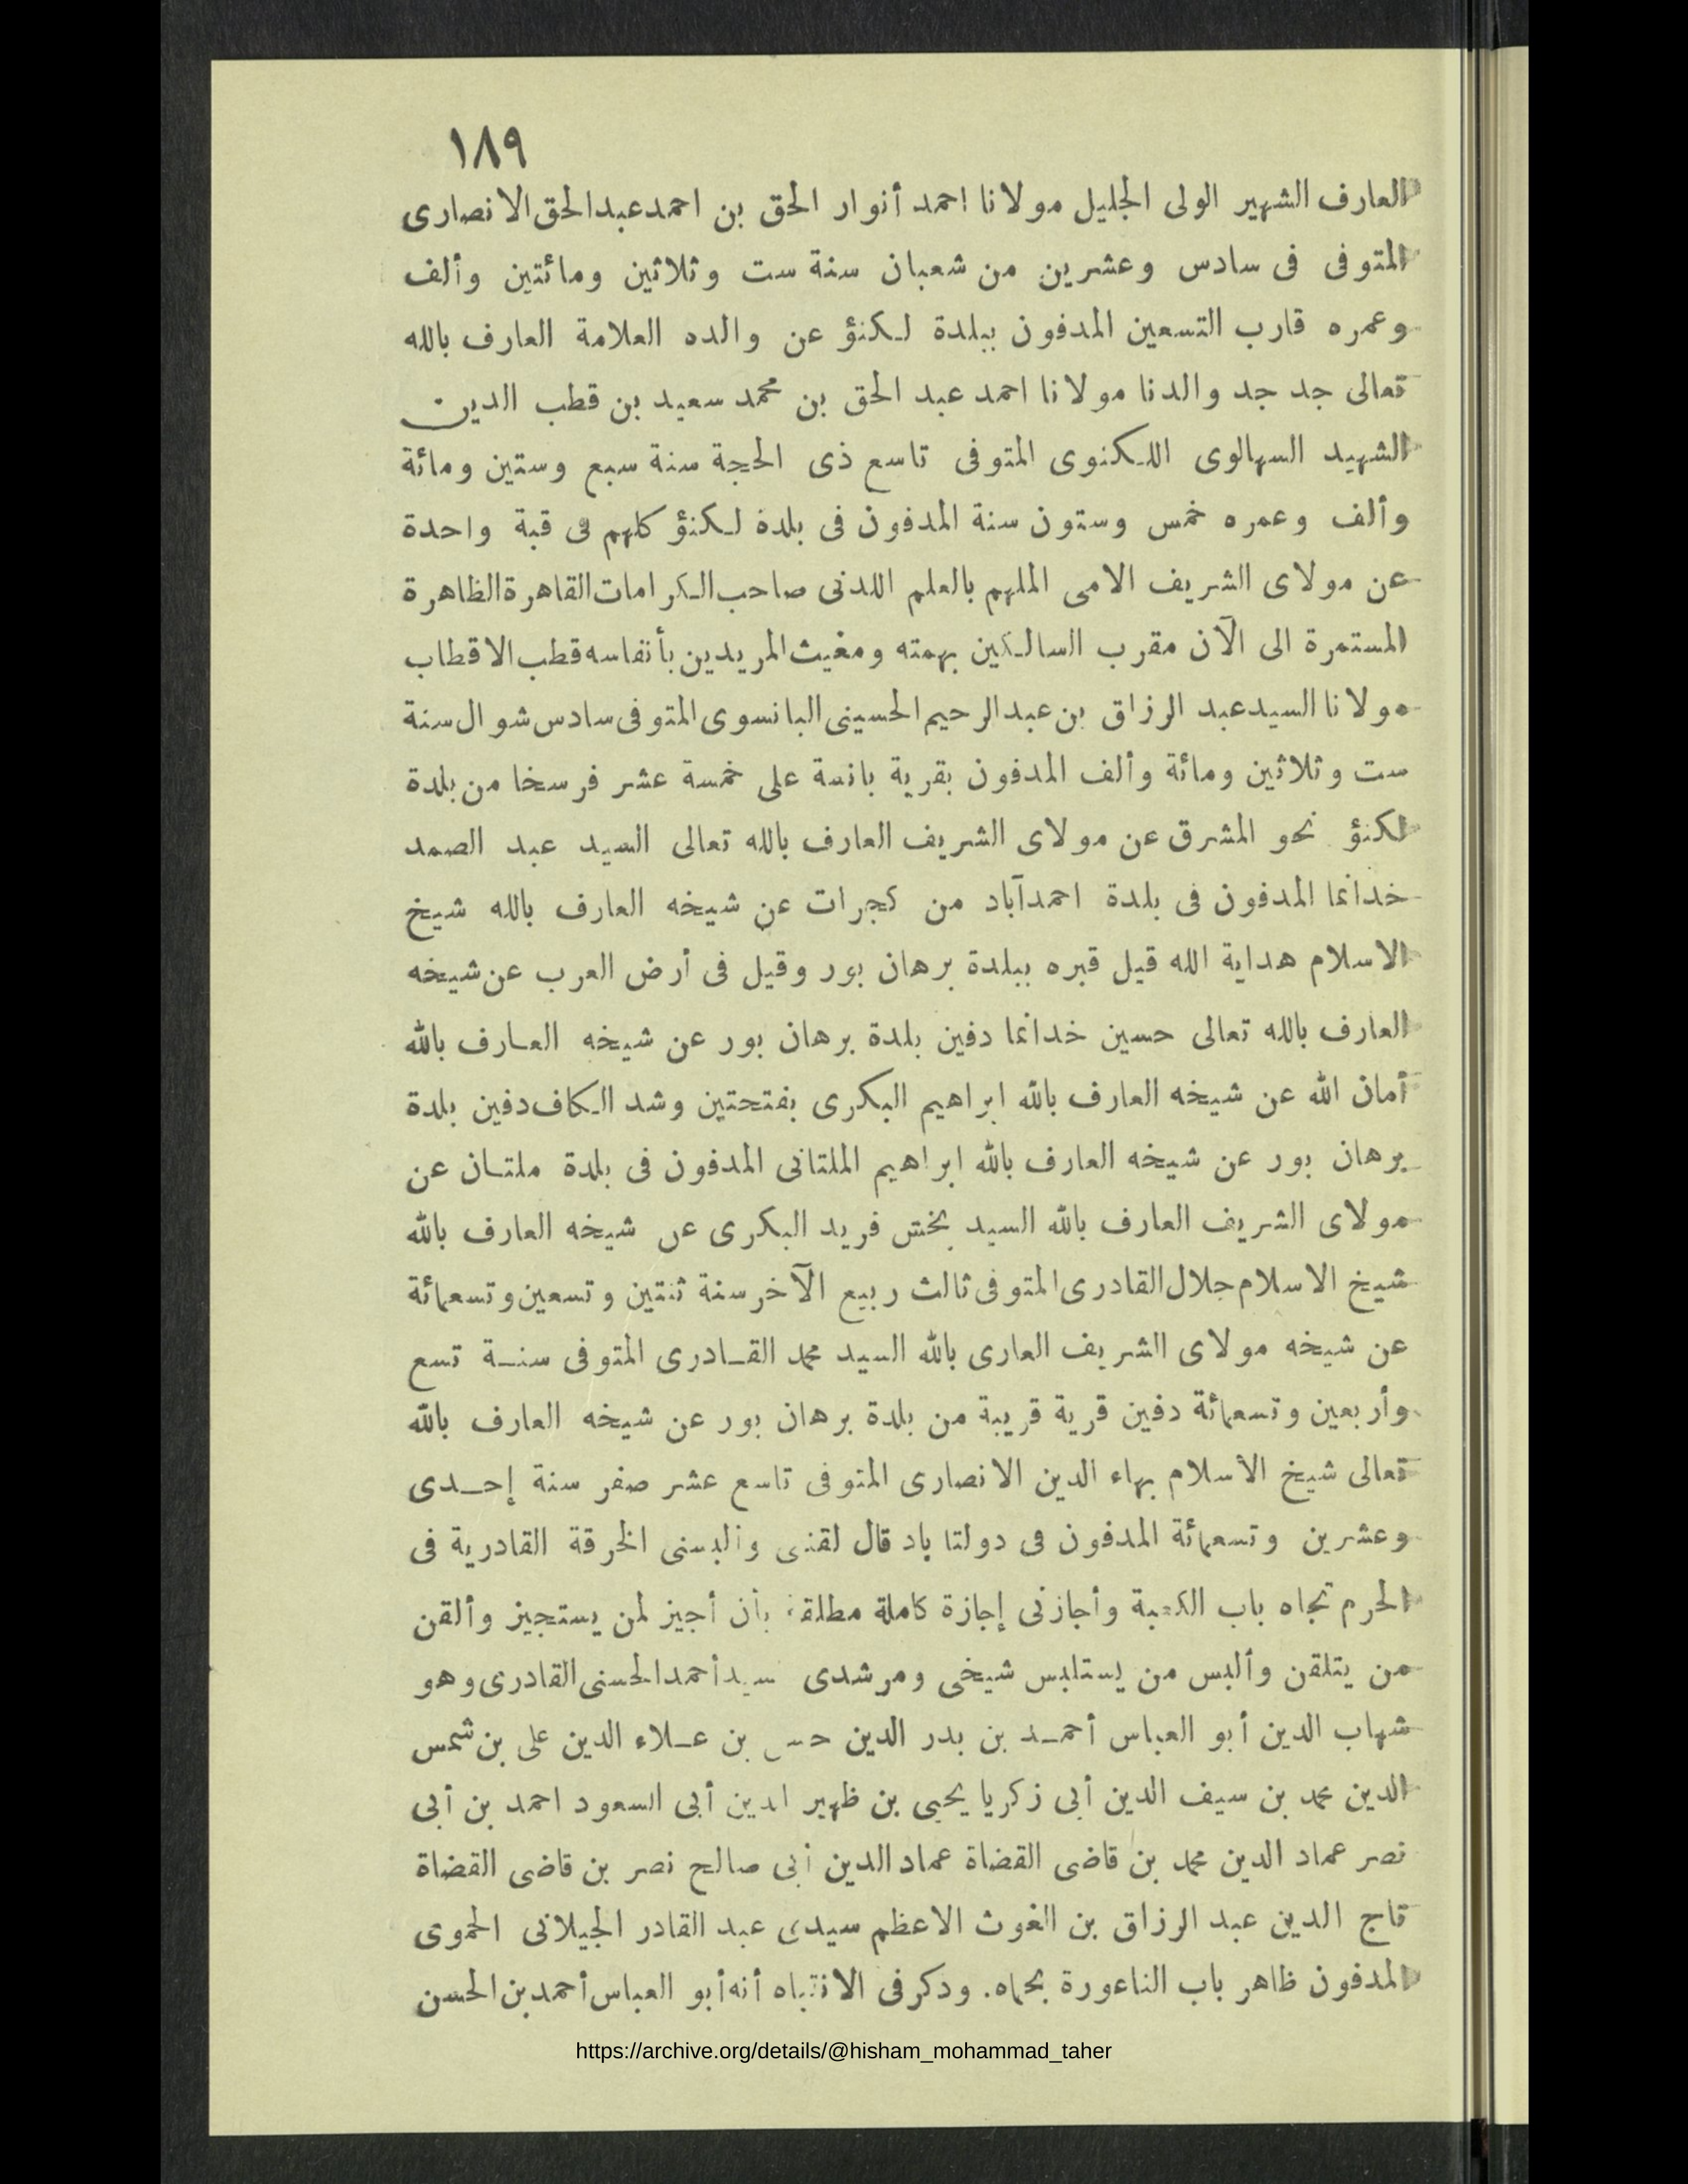 ١٨٩
العارف الشهير الولى الجليل مولانا احمد أنوار الحق بن احمد عبد الحق الانصارى
المتوفى فى سادس وعشرين من شعبان سنة ست وثلاثين ومائتين وألف
وعمره قارب التسعين المدفون ببلدة لكنؤ عن والده العلامة العارف بالله
تعالى جد جد والدنا مولانا احمد عبد الحق بن محمد سعيد بن قطب الدين
الشهيد السهالوى اللكنوى المتوفى تاسع ذى الحجة سنة سبع وستين ومائة
وألف وعمره خمس وستون سنة المدفون فى بلدة لكنؤ كلهم فى قبة واحدة
عن مولاى الشريف الامى الملهم بالعلم اللدنى صاحب الكرامات القاهرة الظاهرة
المستمرة الى الآن مقرب السالكين بهمته ومغيث المريدين بأنفاسه قطب الاقطاب
مولانا السيد عبد الرزاق بن عبد الرحيم الحسينى البانسوى المتوفى سادس شوال سنة
ست وثلاثين ومائة وألف المدفون بقرية بانسة على خمسة عشر فرسخا من بلدة
لكنؤ نحو المشرق عن مولاى الشريف العارف بالله تعالى السيد عبد الصمد
خدانما المدفون فى بلدة احمدآباد من كجرات عن شيخه العارف بالله شيخ
الاسلام هداية الله قيل قبره ببلدة برهان بور وقيل فى أرض العرب عن شيخه
العارف بالله تعالى حسين خدانما دفين بلدة برهان بور عن شيخه العارف بالله
أمان الله عن شيخه العارف بالله ابراهيم البكرى بفتحتين وشد الكاف دفين بلدة
برهان بور عن شيخه العارف بالله ابراهيم الملتانى المدفون فى بلدة ملتان عن
مولاى الشريف العارف بالله السيد بخش فريد البكرى عن شيخه العارف بالله
شيخ الاسلام جلال القادرى المتوفى ثالث ربيع الآخر سنة ثنتين وتسعين وتسعمائة
عن شيخه مولاى الشريف العارى بالله السيد محمد القادرى المتوفى سنة تسع
وأربعين وتسعمائة دفين قرية قريبة من بلدة برهان بور عن شيخه العارف بالله
تعالى شيخ الأسلام بهاء الدين الانصارى المتوفى تاسع عشر صفر سنة إحدى
وعشرين وتسعمائة المدفون فى دولتا باد قال لقننى وألبسنى الخرقة القادرية فى
الحرم تجاه باب الكعبة وأجازنى إجازة كاملة مطلقة بأن أجيز لمن يستجيز وألقن
من يتلقن وألبس من يستلبس شيخى ومرشدى سيد أحمد الحسنى القادرى وهو
شهاب الدين أبو العباس أحمد بن بدر الدين حسن بن علاء الدين على بن شمس
الدين محمد بن سيف الدين أبى زكريا يحيى بن ظهير الدين أبى السعود احمد بن أبى
نصر عماد الدين محمد بن قاضى القضاة عماد الدين أبى صالح نصر بن قاضى القضاة
تاج الدين عبد الرزاق بن الغوث الاعظم سيدى عبد القادر الجيلانى الحموى
المدفون ظاهر باب الناعورة بحماه. وذكر فى الانتباه أنه أبو العباس أحمد بن الحسن
https://archive.org/details/@hisham_mohammad_taher